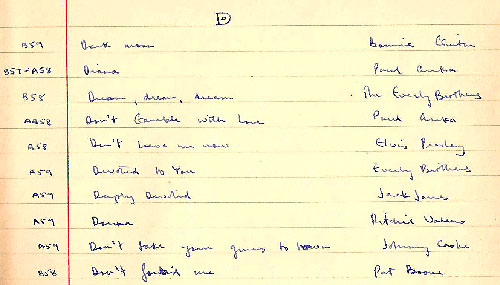 D
B59 Dark moon Bonnie Guitar
B57-A58 Diana Paul Anka
B58 Dream, dream, dream The Everly Brothers
AA58 Don't Gamble with Love Paul Anka
A58 Don't leave me now Elvis Presley
A59 Devoted to You Everly Brothers
A59 Deeply Devoted Jack Jones
A59 Donna Ritchie Valens
A59 Don't take your guns to town Johnny Cash
B58 Don't forbid me Pat Boone